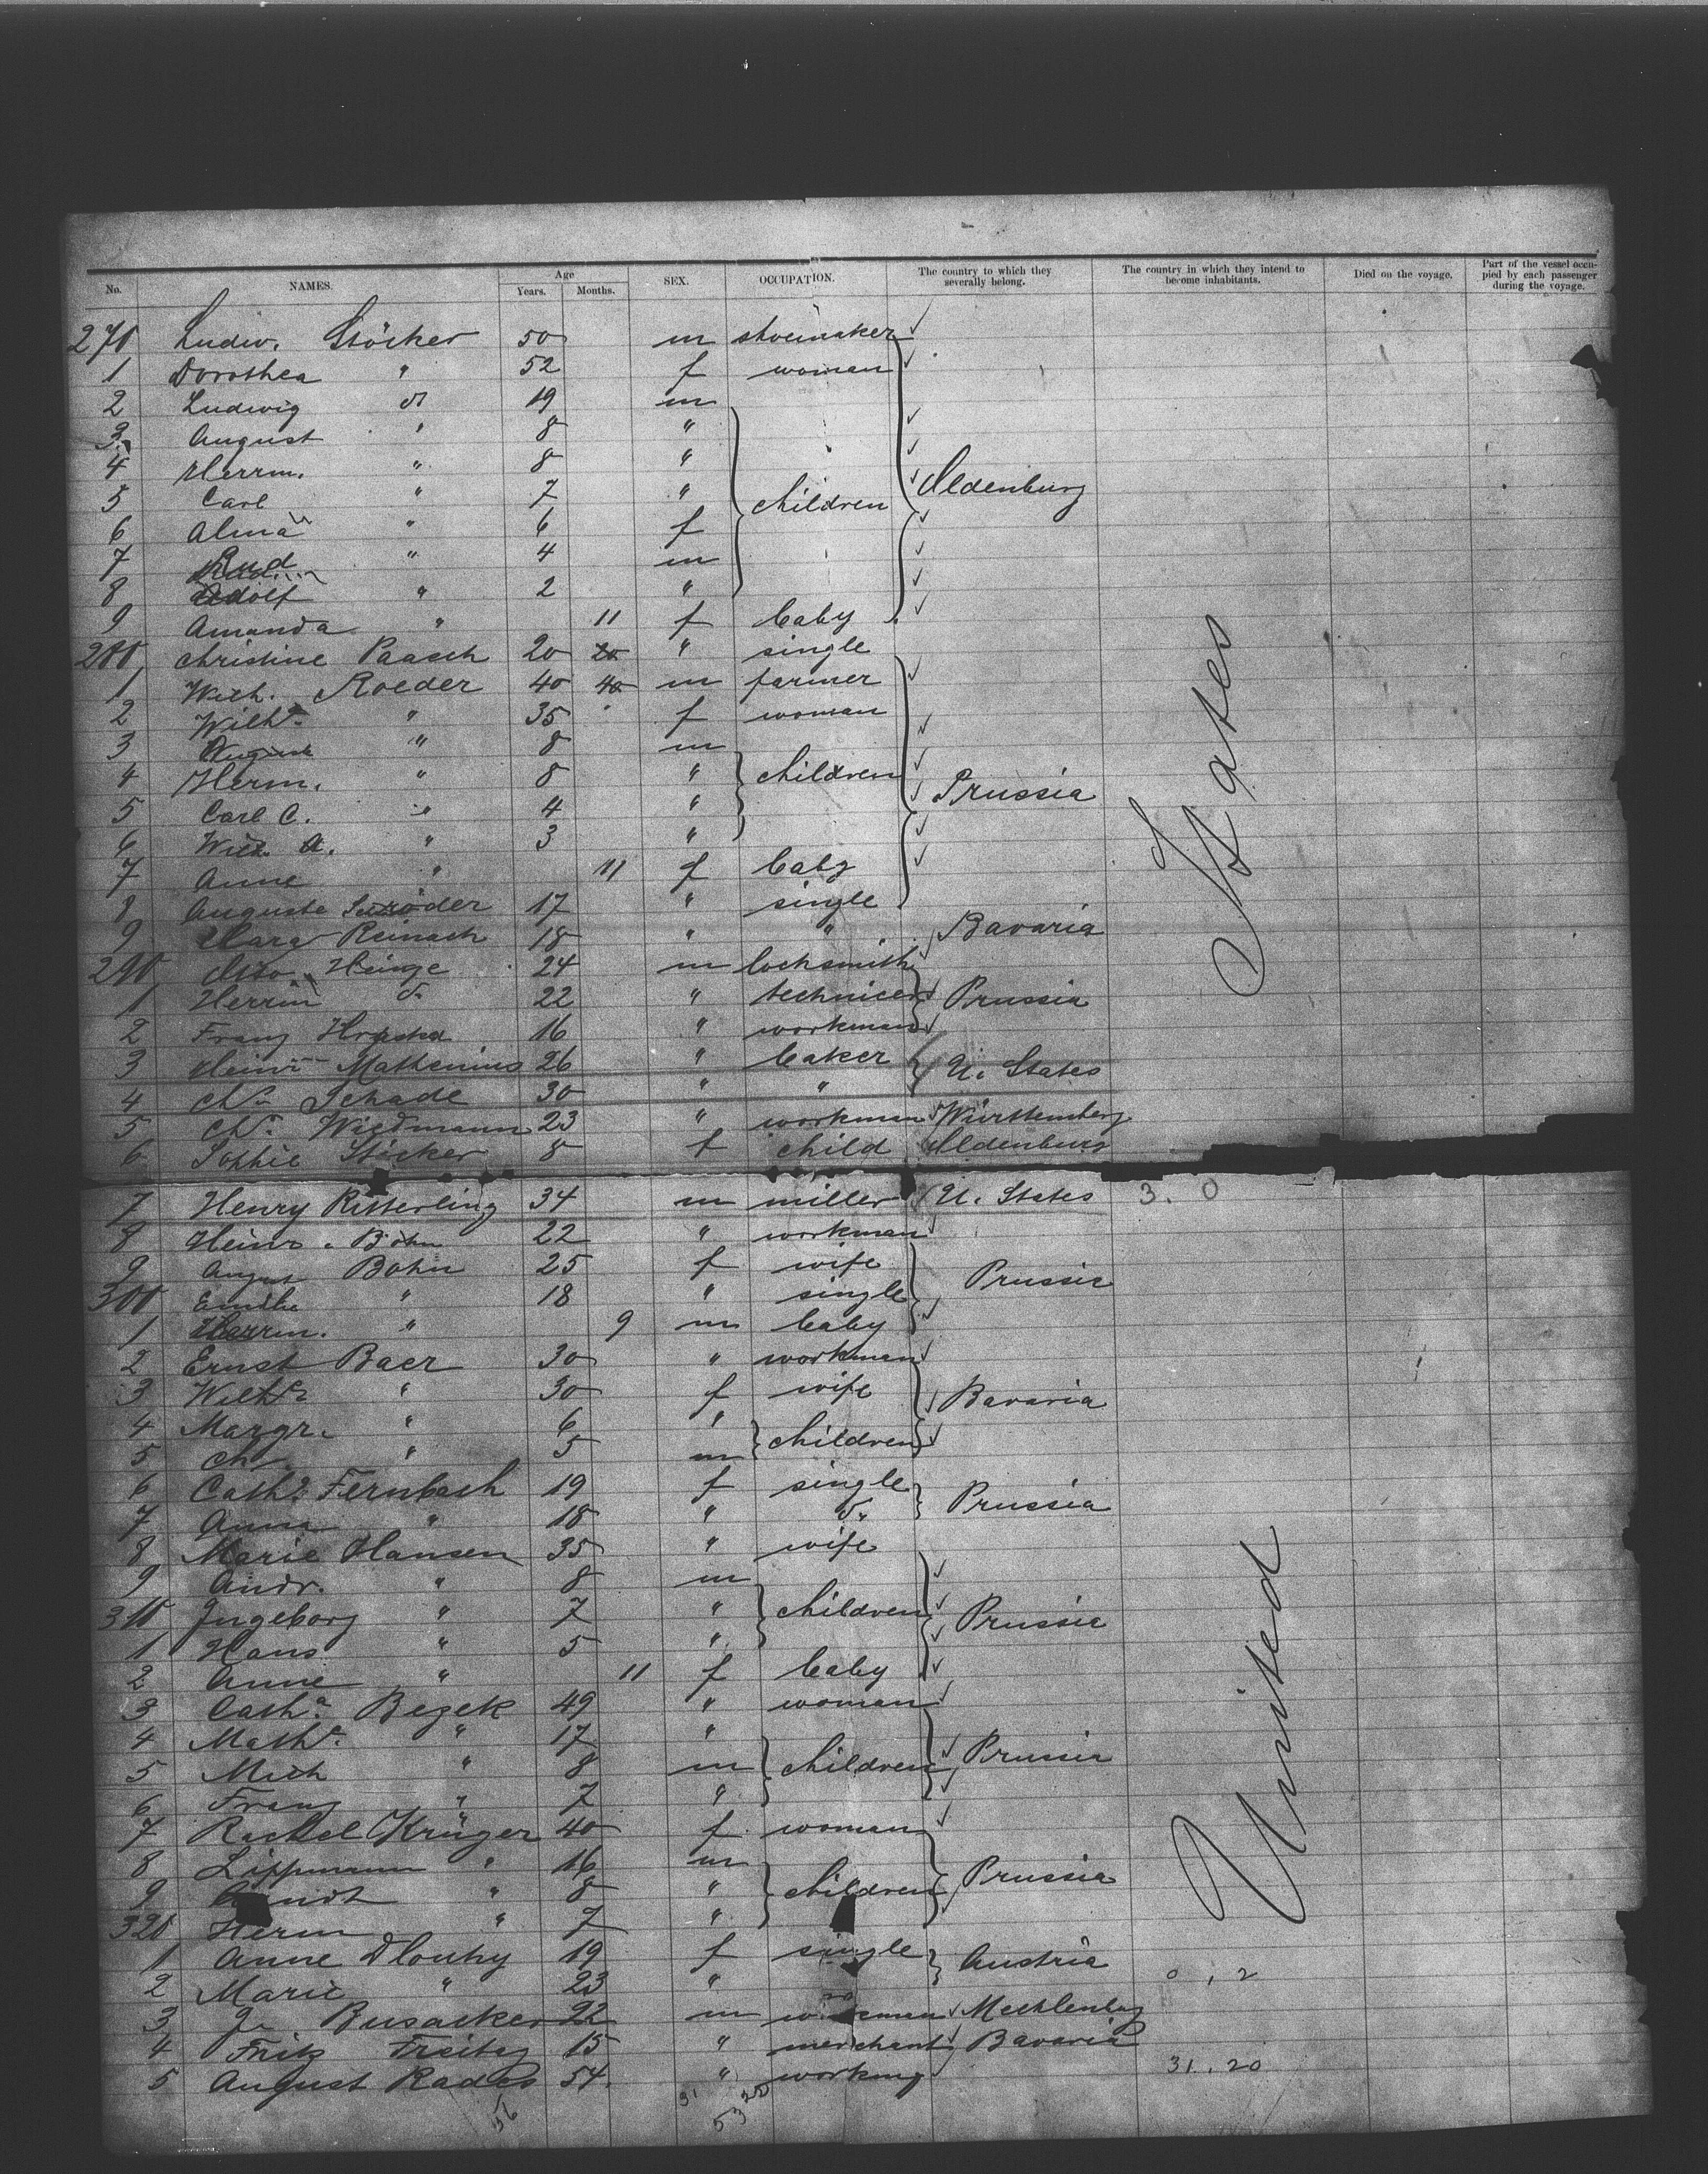 No. NAMES. Age Years. Months. SEX. OCCUPATION. The country to which they severally belong. The country in which they intend to become inhabitants. Died on the voyage. Part of the vessel occupied by each passenger during the voyage.
270 Ludw. Stöcker 50 m shoemaker
1 Dorothea " 52 f woman
2 Ludwig do 19 m
3 August " 8 "
4 Herrm. " 8 "
5 Carl " 7 " children Oldenburg
6 Alma " 6 f
7 Rud " 4 m
8 Adolf " 2 "
9 Amanda " 11 f baby
280 Christine Paasch 20 20 " single
1 Wilh. Roeder 40 40 m farmer
2 Wilhe. " 35 f woman
3 August " 8 m
4 Herm. " 8 " children Prussia
5 Carl C. " 4 "
6 Wilh A. " 3 "
7 Anne " 11 f baby
8 Auguste 17 " single
9 Reinach 18 " " Bavaria
290 Otto Heinze 24 m locksmith
1 Herrm do 22 " technicer Prussia
2 Franz 16 " workman
3 Heinr Mathenius 26 " baker U. States
4 Chr. Schade 30 " "
5 Chr. Wiedmann 23 " workman Württemberg
6 Sophie Stöcker 8 f child Oldenburg
7 Henry Ritterling 34 m miller U. States 3. 0
8 Heinr. Böhm 22 " workman
9 August Bohn 25 f wife Prussia
300 Emilie " 18 " single
1 Herrm. " 9 m baby
2 Ernst Baer 30 " workman
3 Wilhe " 30 f wife Bavaria
4 Margr. " 6 " children
5 Chr. " 5 m
6 Catha. Fernbach 19 f single Prussia
7 Anna " 18 " do.
8 Marie Hansen 35 " wife
9 Andr. " 8 m
310 Ingeborg " 7 " children Prussia
1 Hans " 5 "
2 Anne " 11 f baby
3 Catha. Bezek 49 " woman
4 Mathe. " 17 "
5 Mich " 8 m children Prussia
6 Franz " 7 "
7 Rachel Krüger 40 f woman
8 Lippmann " 16 m Prussia
9 " 8 " children
320 Herm " 7 "
1 Anne Dlouhy 19 f single Austria
2 Marie " 23 " 0 , 2
3 Busacker 22 m workman Mecklenburg
4 Fritz Freitag 15 " merchant Bavaria
5 August Rades 54 " working 31. 20
United States